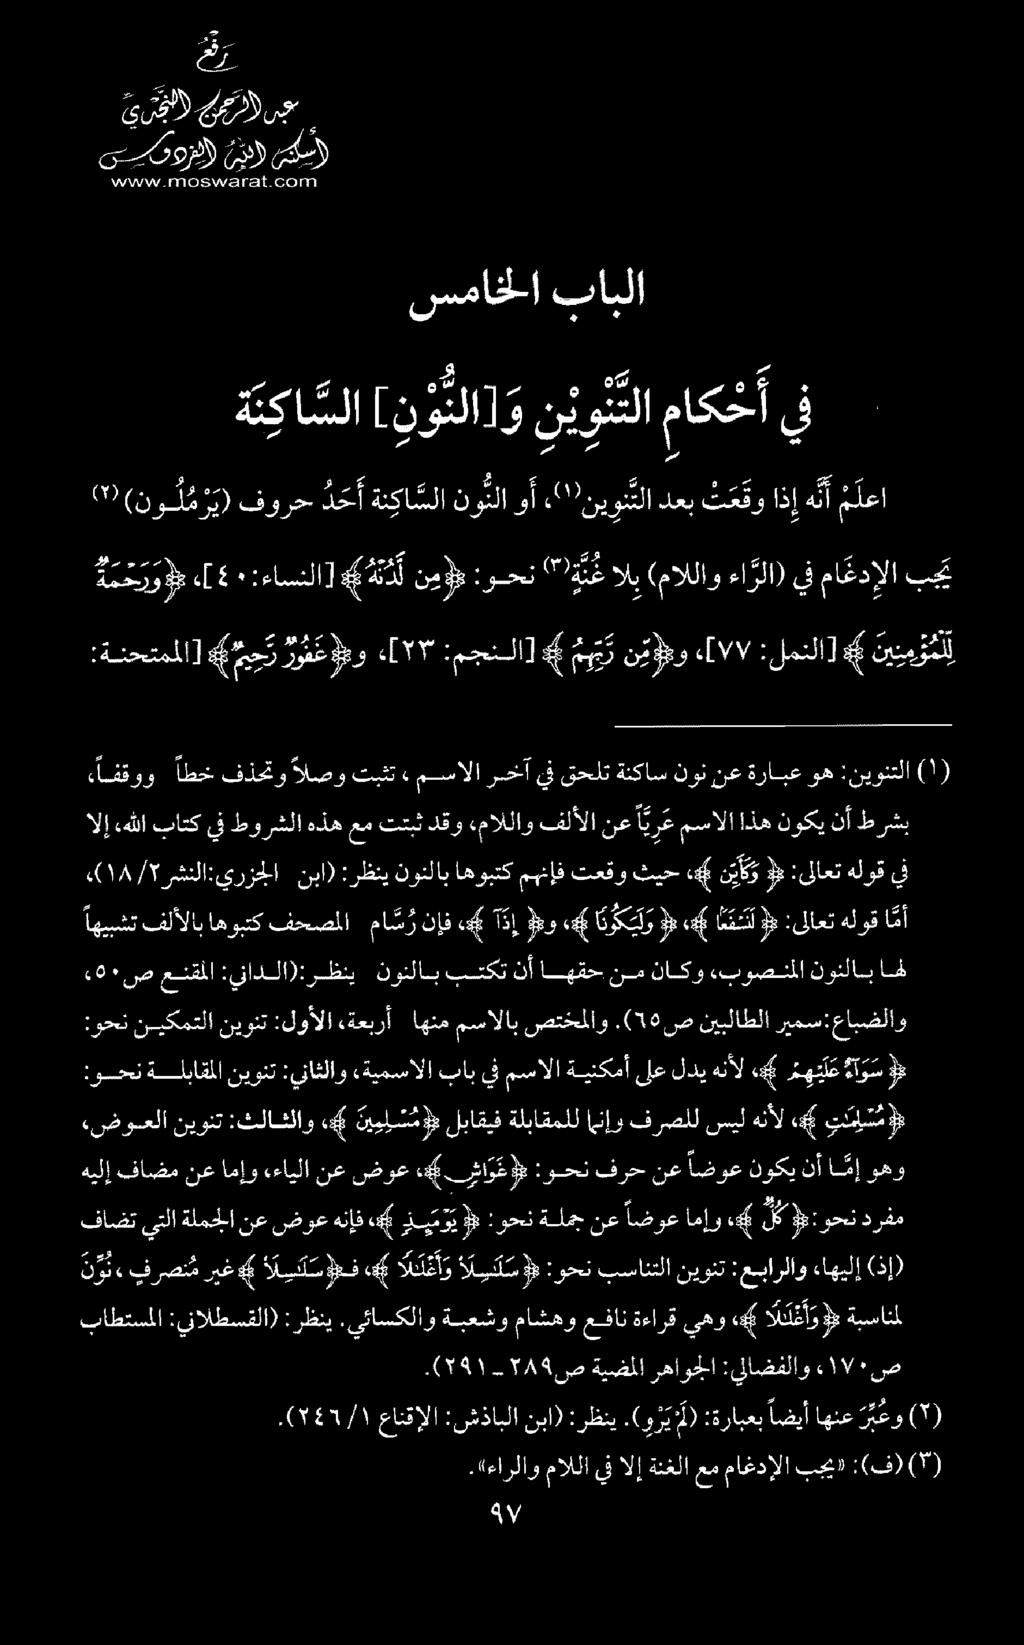 رَفْعُ
عبد الرحمن النجدي
أسكنه الله الفردوس
www.moswarat.com
الباب الخامس
في أَحْكامِ التَّنْوِيْنِ وَ[النُّوْنِ] السَّاكِنَة
اعلَمْ أنَّه إذا وقَعَتْ بعد التَّنوِين(١)، أو النُّون السَّاكِنة أَحَدُ حروف (يَرْمُلُون)(٢)
يَجب الإدغام في (الرَّاء واللام) بِلا غُنَّةٍ(٣) نحو: ﴿مِن لَّدُنْهُ﴾ [النساء: ٤٠]، ﴿وَرَحْمَةٌ
لِّلْمُؤْمِنِينَ﴾ [النمل: ٧٧]، و﴿مِّن رَّبِّهِمُ﴾ [النجم: ٢٣]، و﴿غَفُورٌ رَّحِيمٌ﴾ [الممتحنة:
(١) التنوين: وهو عبارة عن نون ساكنة تلحق في آخر الاسم، تثبت وصلاً وتحذف خطاً ووقفاً،
بشرط أن يكون هذا الاسم عَرِيّاً عن الألف واللام، وقد تثبت مع هذه الشروط في كتاب الله، إلا
في قوله تعالى: ﴿وَكَأَيِّن﴾، حيث وقعت فإنهم كتبوها بالنون ينظر: (ابن الجزري:النشر١٨/٢)،
أمَّا قوله تعالى: ﴿لَنَسْفَعًا﴾، ﴿وَلَيَكُونًا﴾، و﴿إِذًا﴾، فإن رُسَّام المصحف كتبوها بالألف تشبيهاً
لها بالنون المنصوب، وكان من حقها أن تكتب بالنون ينظر:(الداني: المقنع ص٥٠،
والضباع:سمير الطالبين ص٦٥). والمختص بالاسم منها أربعة، الأول: تنوين التمكين نحو:
﴿سَوَآءٌ عَلَيْهِمْ﴾، لأنه يدل على أمكنية الاسم في باب الاسمية، والثاني: تنوين المقابلة نحو:
﴿مُسْلِمَٰتٍ﴾، لأنه ليس للصرف وإنما للمقابلة فيقابل ﴿مُسْلِمِينَ﴾، والثالث: تنوين العوض،
وهو إمَّا أن يكون عوضاً عن حرف نحو: ﴿غَوَاشٍ﴾، عوض عن الياء، وإما عن مضاف إليه
مفرد نحو:﴿كُلٌّ﴾، وإما عوضاً عن جملة نحو: ﴿يَوْمَئِذٍ﴾، فإنه عوض عن الجملة التي تضاف
(إذ) إليها، والرابع: تنوين التناسب نحو: ﴿سَلَٰسِلًا وَأَغْلَٰلًا﴾، فـ﴿سَلَٰسِلًا﴾ غير مُنصرفٍ، نُوِّنَ
لمناسبة ﴿وَأَغْلَٰلًا﴾، وهي قراءة نافع وهشام وشعبة والكسائي. ينظر: (القسطلاني: المستطاب
ص١٧٠، والفضالي: الجواهر المضية ص٢٨٩ـ ٢٩١).
(٢) وعُبِّرَ عنها أيضاً بعبارة: (لَمْ يَرْوِ). ينظر: (ابن الباذش: الإقناع ٢٤٦/١).
(٣)(ف): «يجب الإدغام مع الغنة إلا في اللام والراء».
٩٧